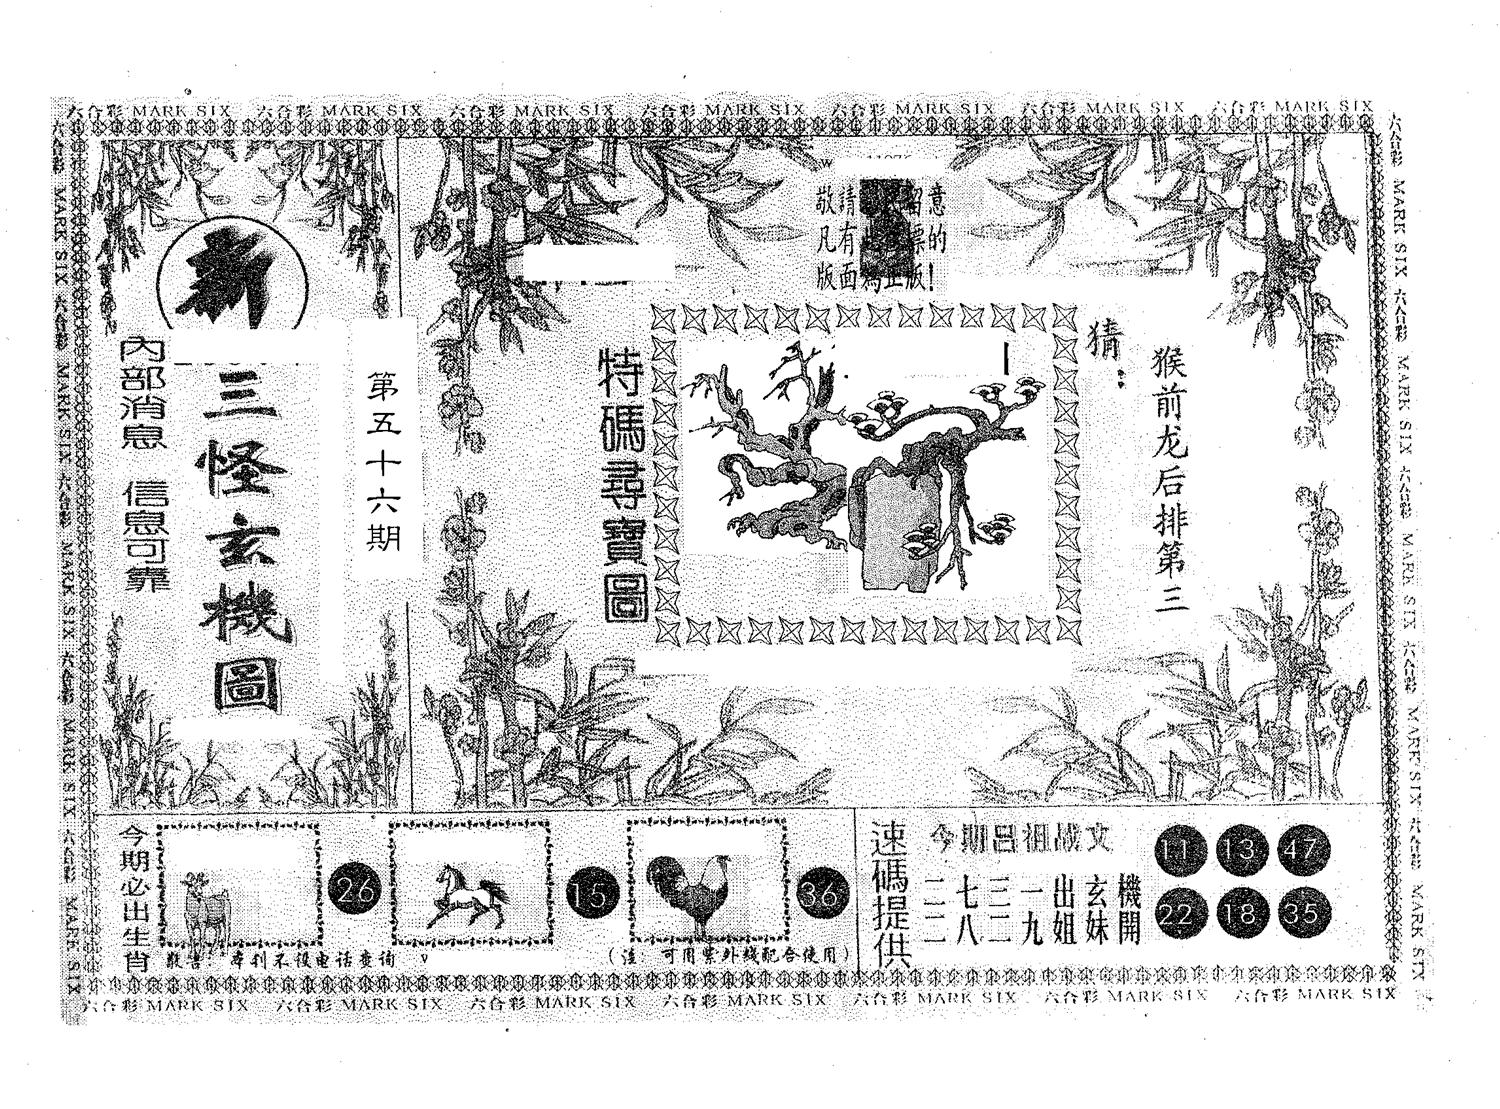 六合彩 MARK SIX 六合彩 MARK SIX 六合彩 MARK SIX 六合彩 MARK SIX 六合彩 MARK SIX 六合彩 MARK SIX 六合彩 MARK SIX
六合彩 MARK SIX 六合彩 MARK SIX 六合彩 MARK SIX 六合彩 MARK SIX 六合彩 MARK SIX
新
內部消息 信息可靠
三怪玄機圖
第五十六期
敬請 留意
凡有 標的
版面爲正版!
特碼尋寶圖
猜:
猴前龙后排第三
六合彩 MARK SIX 六合彩 MARK SIX 六合彩 MARK SIX 六合彩 MARK SIX 六合彩 MARK SIX
今期必出生肖
26
15
36
敬告 本刊不设电话查询
(注 可用紫外线配合使用)
速碼提供
今期呂祖 文
二七三一出玄機
二八二九姐妹開
11 13 47
22 18 35
六合彩 MARK SIX 六合彩 MARK SIX 六合彩 MARK SIX 六合彩 MARK SIX 六合彩 MARK SIX 六合彩 MARK SIX 六合彩 MARK SIX